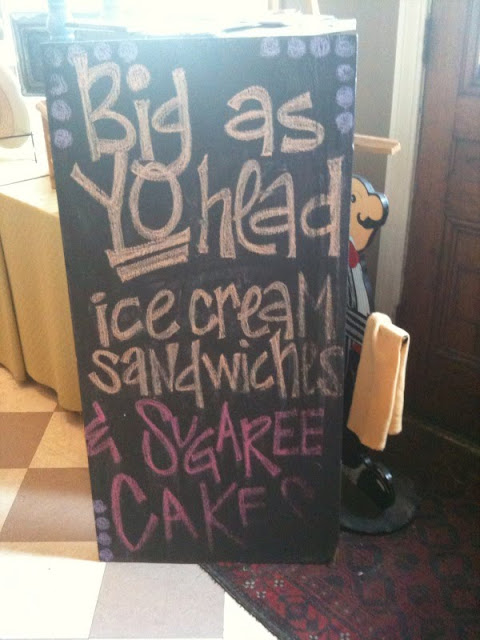 Big as
YO head
ice cream
sandwiches
& SUGAREE
CAKES